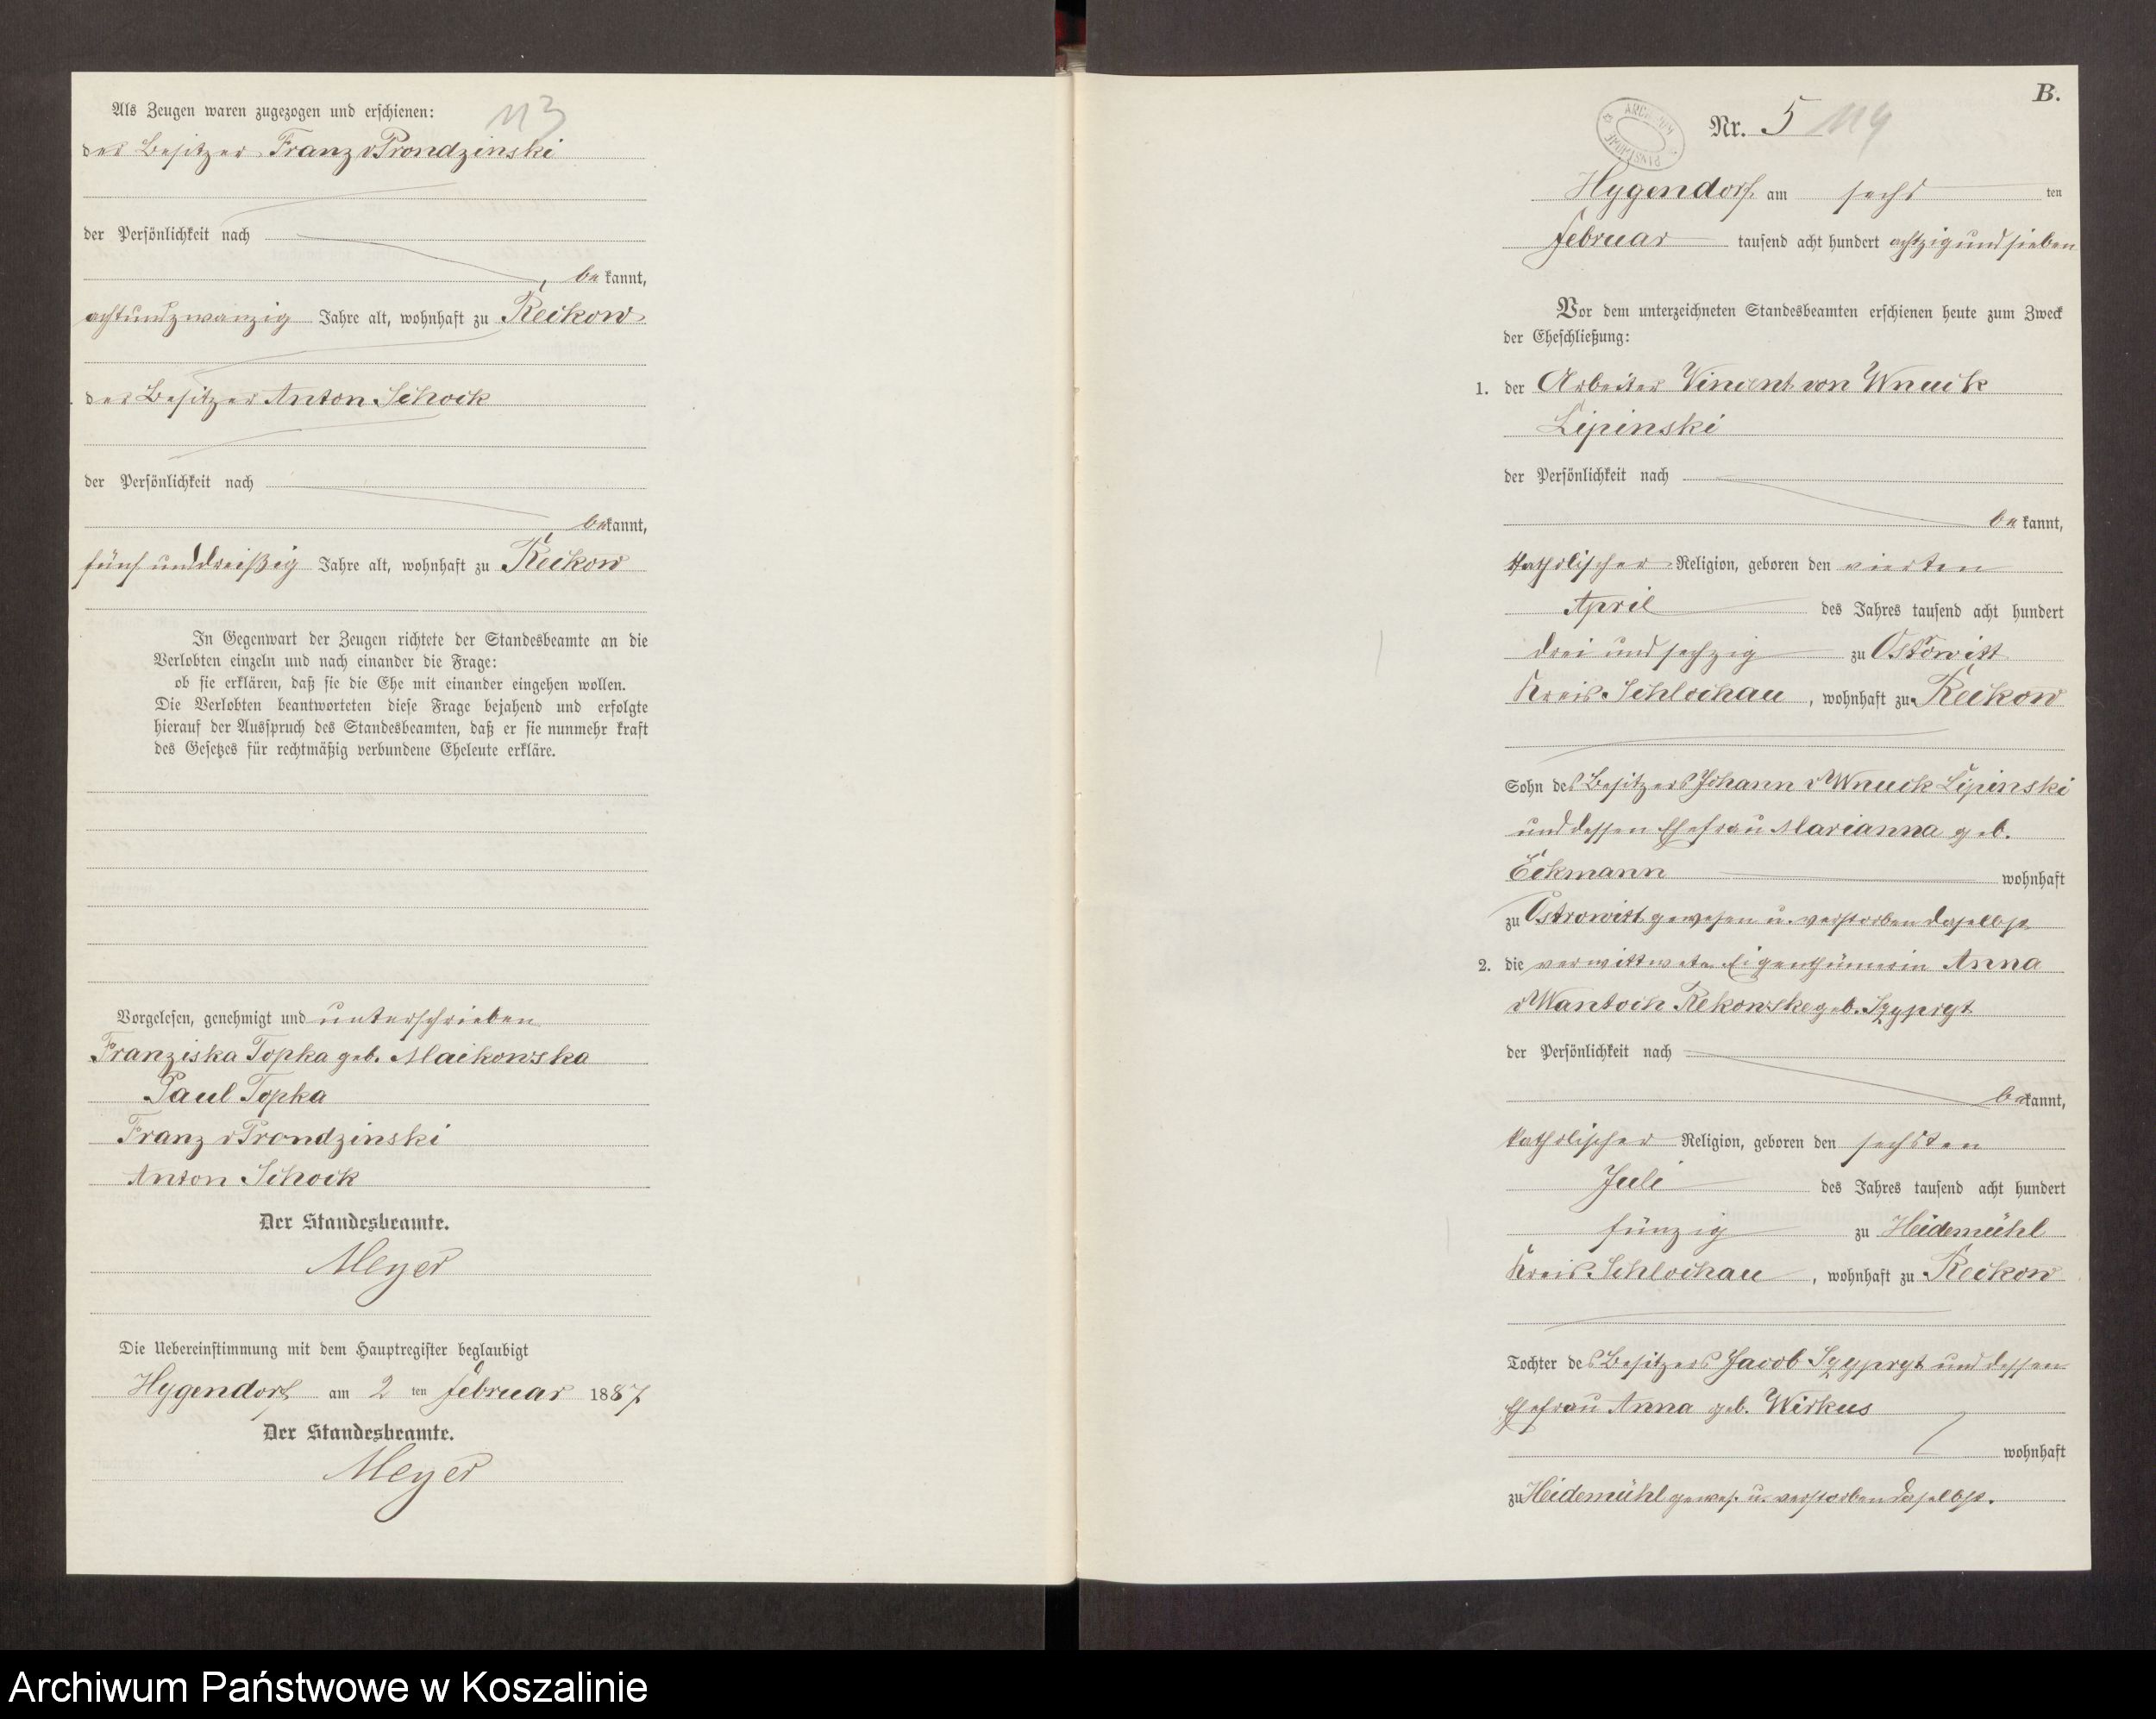 Als Zeugen waren zugezogen und erschienen:
113
der Besitzer Franz v Prondzinski
der Persönlichkeit nach
be kannt,
achtundzwanzig Jahre alt, wohnhaft zu Reckow
der Besitzer Anton Schock
der Persönlichkeit nach
bekannt,
fünf und dreißig Jahre alt, wohnhaft zu Reckow
In Gegenwart der Zeugen richtete der Standesbeamte an die
Verlobten einzeln und nach einander die Frage:
ob sie erklären, daß sie die Ehe mit einander eingehen wollen.
Die Verlobten beantworteten diese Frage bejahend und erfolgte
hierauf der Ausspruch des Standesbeamten, daß er sie nunmehr kraft
des Gesetzes für rechtmäßig verbundene Eheleute erkläre.
Vorgelesen, genehmigt und unterschrieben
Franziska Topka geb. Maikowska
Paul Topka
Franz v Prondzinski
Anton Schock
Der Standesbeamte.
Meyer
Die Uebereinstimmung mit dem Hauptregister beglaubigt
Hygendorf am 2 ten Februar 1887
Der Standesbeamte.
Meyer
B.
Nr. 5 114
Hygendorf am sechs ten
Februar tausend acht hundert achtzig und sieben
Vor dem unterzeichneten Standesbeamten erschienen heute zum Zweck
der Eheschließung:
1. der Arbeiter Vincent von Wnuck
Lipinski
der Persönlichkeit nach
be kannt,
katholischer Religion, geboren den vierten
April des Jahres tausend acht hundert
drei und sechzig zu Ostrowitt
Kreis Schlochau, wohnhaft zu Reckow
Sohn des Besitzers Johann v Wnuck Lipinski
und dessen Ehefrau Marianna geb.
Eckmann wohnhaft
zu Ostrowitt gewesen u. verstorben daselbst
2. die verwittwete Eigenthümerin Anna
v Wantoch Rekowske geb. Szypryt
der Persönlichkeit nach
bekannt,
katholischer Religion, geboren den sechsten
Juli des Jahres tausend acht hundert
fünzig zu Heidemühl
Kreis Schlochau, wohnhaft zu Reckow
Tochter des Besitzers Jacob Szypryt und dessen
Ehefrau Anna geb. Wirkus
wohnhaft
zu Heidemühl gewes. u. verstorben daselbst.
Archiwum Państwowe w Koszalinie